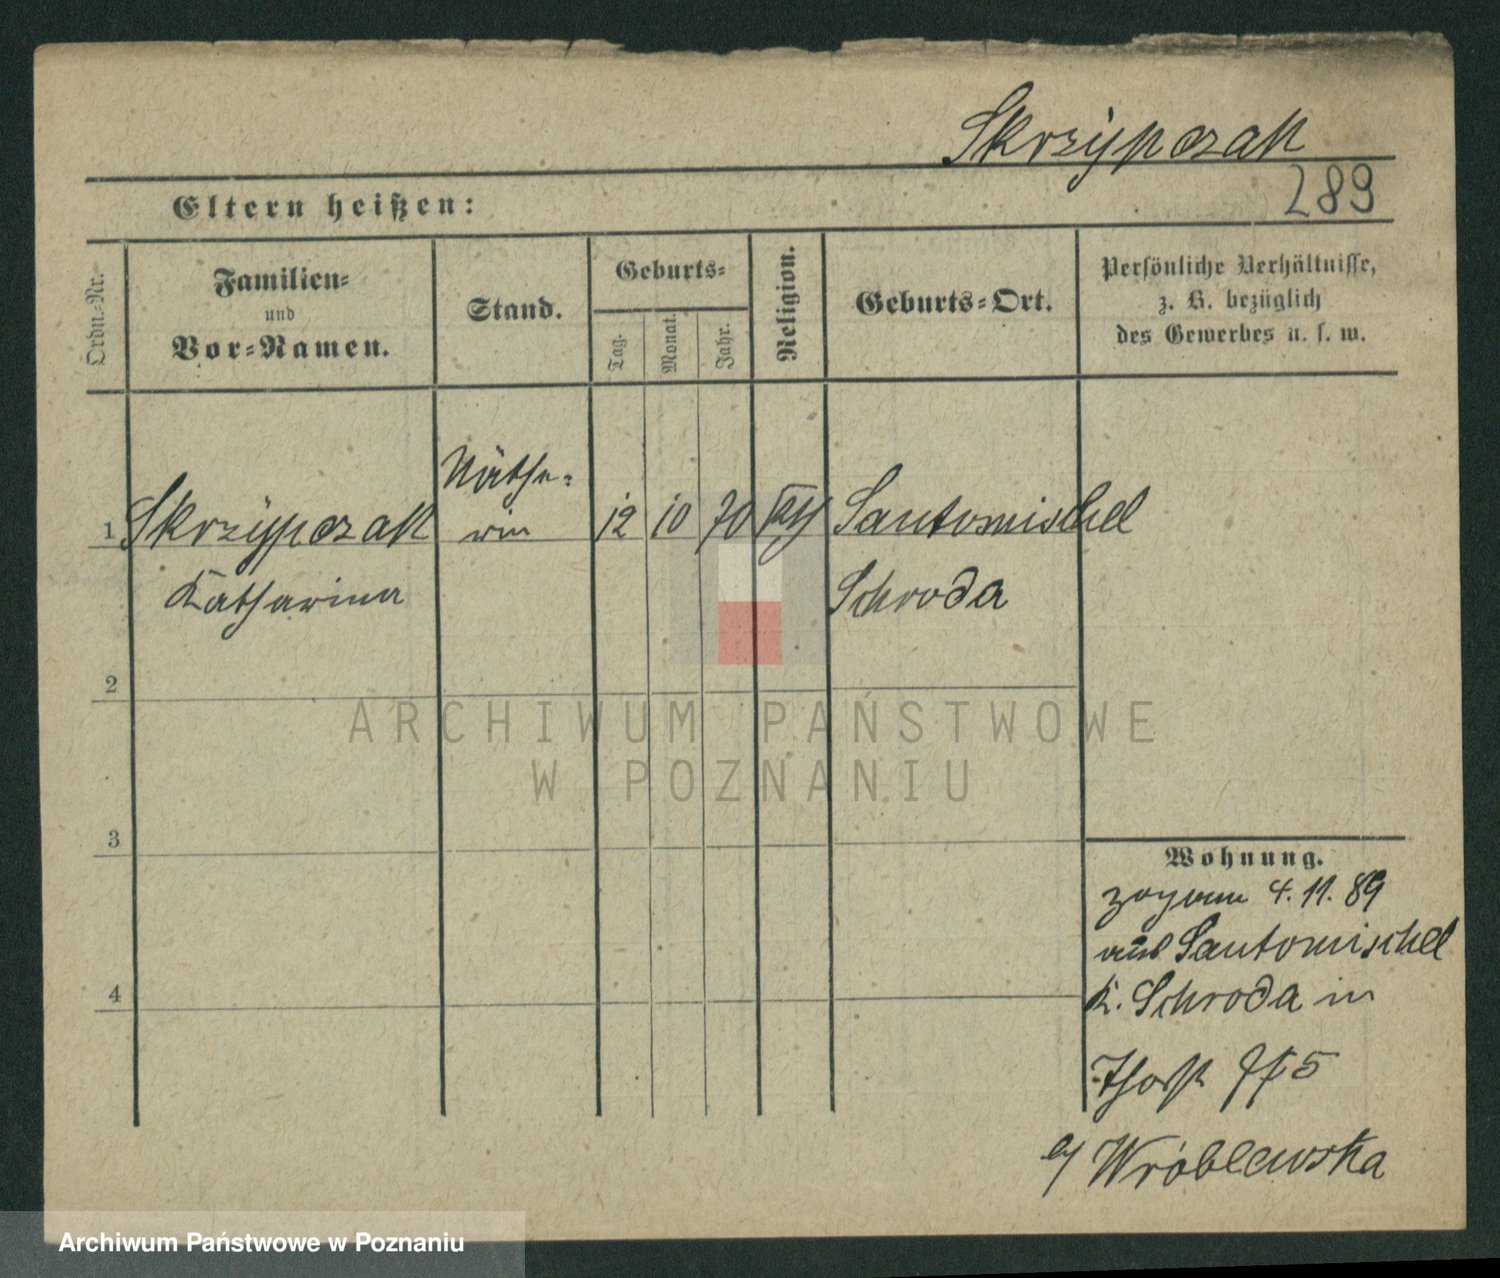 Skrzypczak
289
Eltern heißen:
Ordn.-Nr.
Familien-
und
Vor-Namen.
Stand.
Geburts-
Tag.
Monat.
Jahr.
Religion.
Geburts-Ort.
Persönliche Verhältnisse,
z. B. bezüglich
des Gewerbes u. s. w.
Näthe-
1 Skrzypczak rin 12 10 70 kath Santomischel
Katharina Schroda
2
ARCHIWUM PAŃSTWOWE
W POZNANIU
3
Wohnung.
zugezogen 4. 11. 89
aus Santomischel
4
K. Schroda in
5
b/ Wróblewska
Archiwum Państwowe w Poznaniu